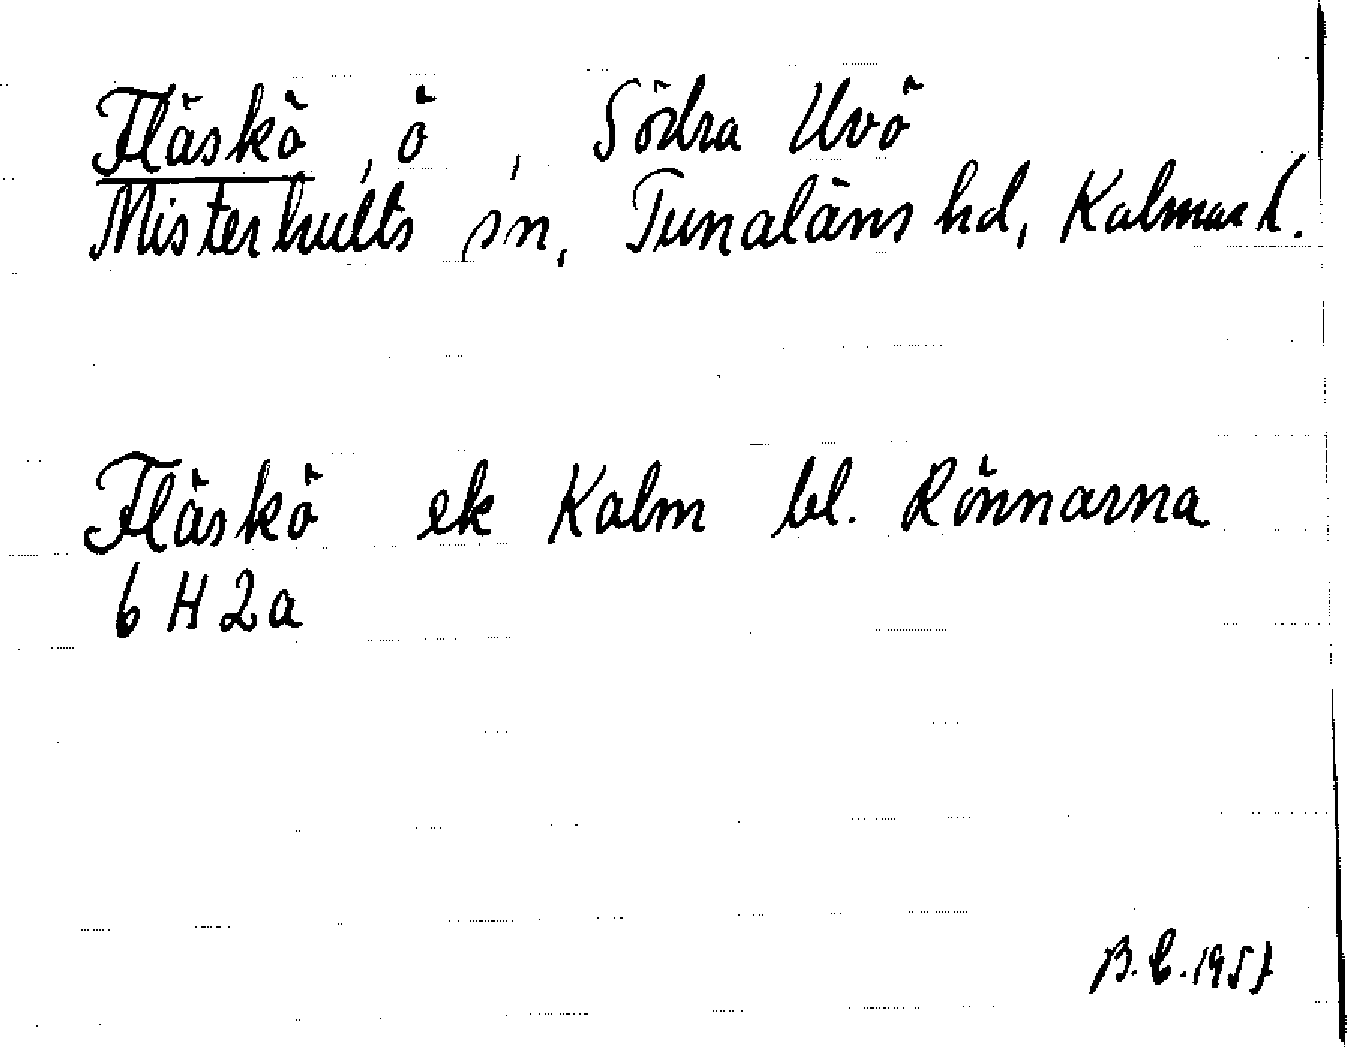 Fläskö, ö, Södra Uvö
Misterhults sn, Tunaläns hd, Kalmar l.
Fläskö ek Kalm bl. Rönnarna
6 H 2a
B.C. 1957